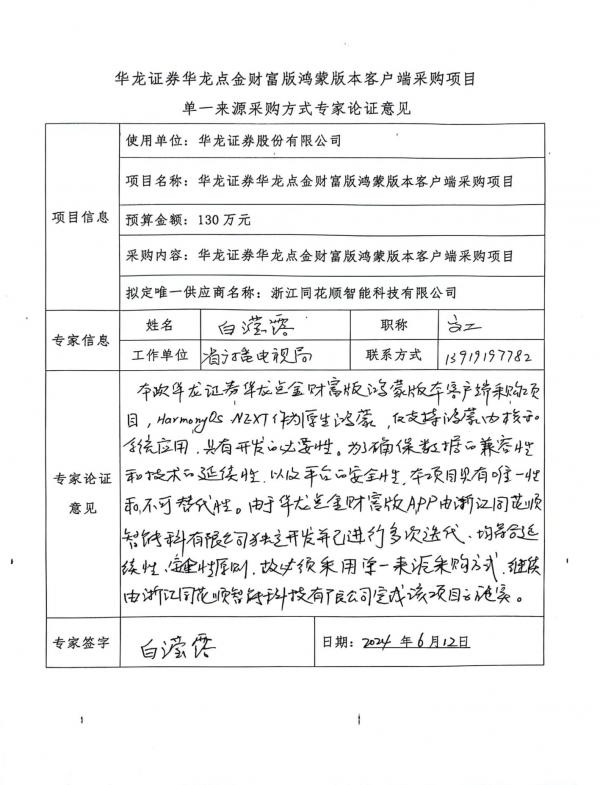 华龙证券华龙点金财富版鸿蒙版本客户端采购项目
单一来源采购方式专家论证意见
项目信息
使用单位：华龙证券股份有限公司
项目名称：华龙证券华龙点金财富版鸿蒙版本客户端采购项目
预算金额：130万元
采购内容：华龙证券华龙点金财富版鸿蒙版本客户端采购项目
拟定唯一供应商名称：浙江同花顺智能科技有限公司
专家信息
姓名 白滢露 职称 高工
工作单位 省广播电视局 联系方式 13919197782
专家论证
意见
本次华龙证券华龙点金财富版鸿蒙版本客户端采购项
目，HarmonyOs NEXT作为原生鸿蒙，仅支持鸿蒙内核和
系统应用，具有开发的必要性。为了确保数据的兼容性
和技术的延续性，以及平台的安全性，本项目具有唯一性
和不可替代性。由于华龙点金财富版APP由浙江同花顺
智能科有限公司独立开发并已进行多次迭代，均符合延
续性、原则，故必须采用单一来源采购方式，继续
由浙江同花顺智能科技有限公司完成该项目的施实。
专家签字 白滢露 日期：2024 年 6 月 12 日